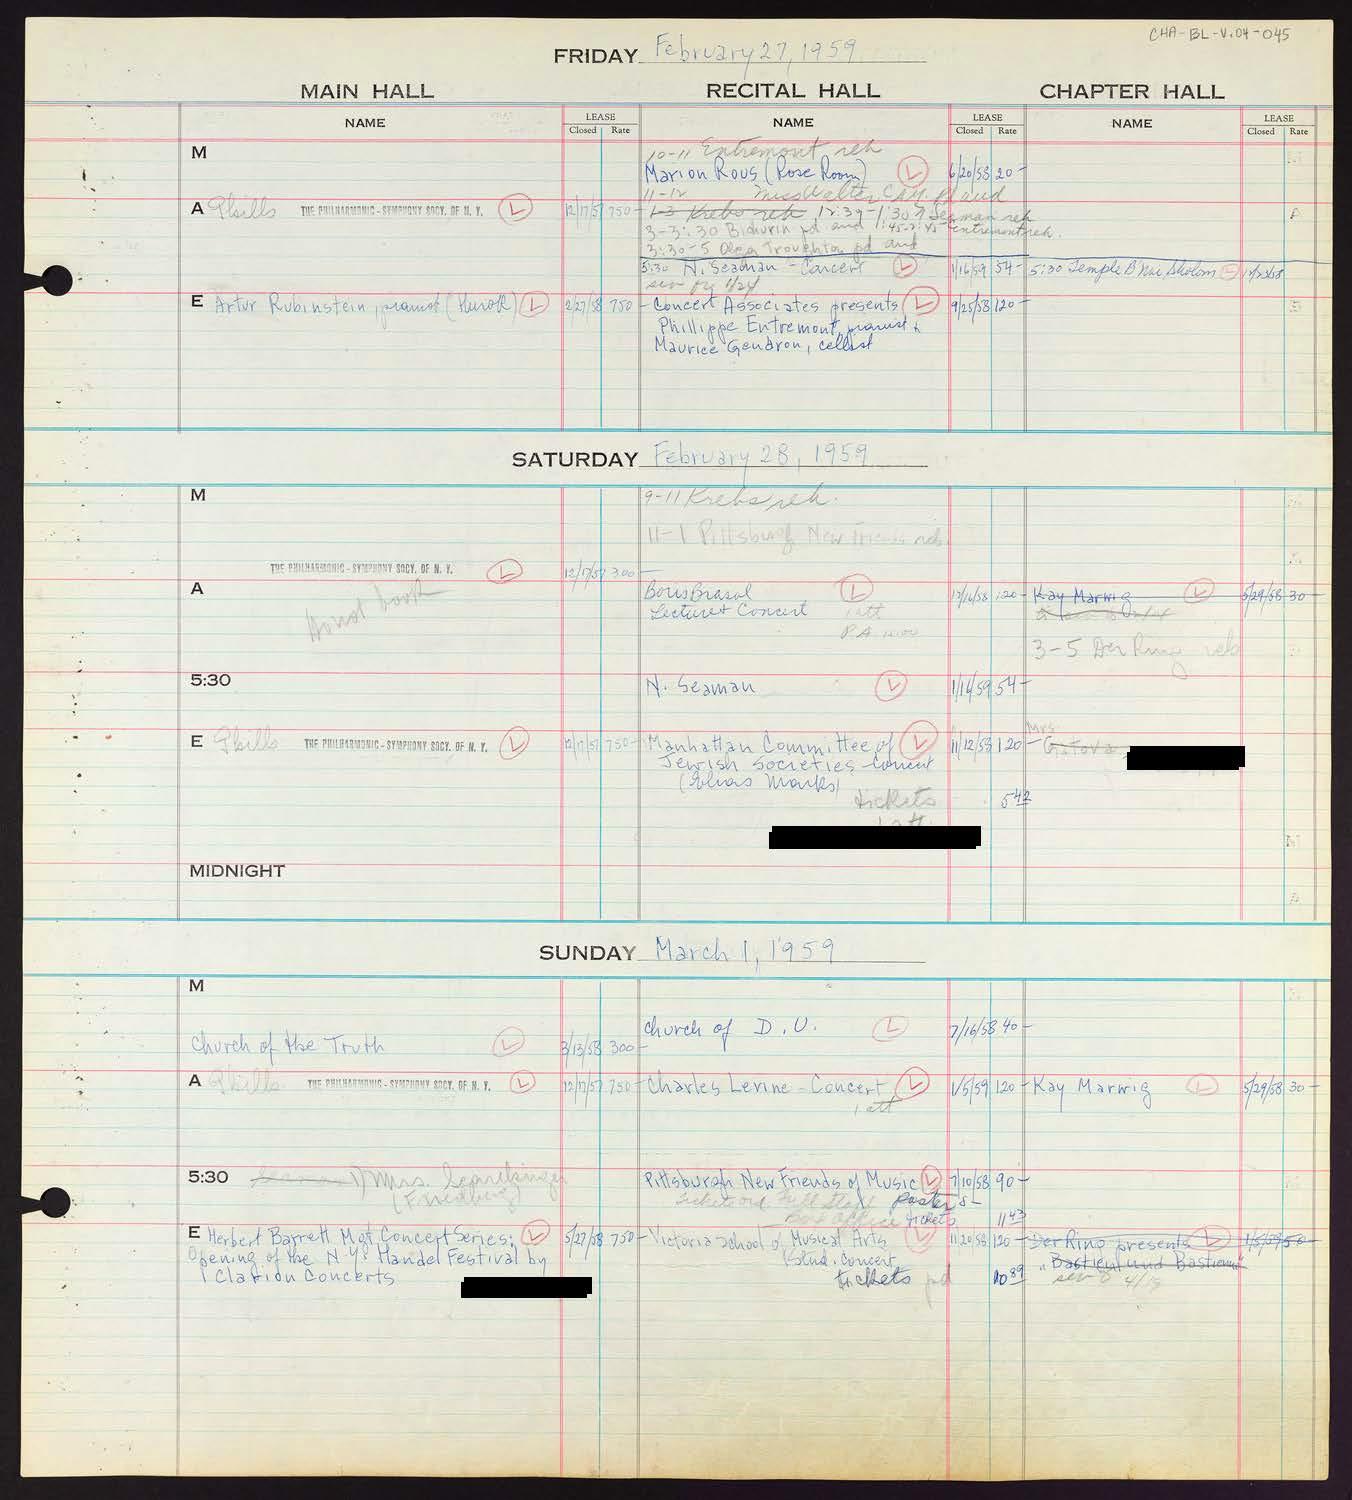 CHA-BL-V.04-045
FRIDAY February 27, 1959
MAIN HALL RECITAL HALL CHAPTER HALL
NAME LEASE Closed Rate NAME LEASE Closed Rate NAME LEASE Closed Rate
M
10-11 Entremont reh
Marion Rous (Rose Room) L 6/20/58 20-
11-12 Miss Walter
A Phills THE PHILHARMONIC-SYMPHONY SOCY. OF N. Y. L 12/17/57 750-
1-3 Krebs reh 12:30-1:30 Seaman reh
3-3:30 Bichurin pd and 1:45-2:45 Entremont reh.
3:30-5 Olga Troughton pd and
5:30 N. Seaman - Concert L 1/16/59 54- 5:30 Temple B'nai Sholom L
E Artur Rubinstein, pianist (Hurok) L 2/27/58 750- Concert Associates presents L 9/25/58 120-
Phillippe Entremont, pianist &
Maurice Gendron, cellist
SATURDAY February 28, 1959
M 9-11 Krebs reh.
11-1 Pittsburgh New Friends reh.
THE PHILHARMONIC-SYMPHONY SOCY. OF N. Y. L 12/17/57 300-
A Do not book
Boris Brasol L 12/16/58 120- Kay Marwig L 5/29/58 30-
Lecture & Concert 1 att
P.A.
3-5 Der Ring reh
5:30 N. Seaman L 1/16/59 54-
E Phills THE PHILHARMONIC-SYMPHONY SOCY. OF N. Y. L 12/17/57 750- Manhattan Committee of L 11/12/58 120- Mrs
Jewish Societies - Concert
(Elias Marks)
tickets 5 42
1 att.
MIDNIGHT
SUNDAY March 1, 1959
M
Church of the Truth L 3/13/58 300- Church of D.U. L 7/16/58 40-
A Phills THE PHILHARMONIC-SYMPHONY SOCY. OF N. Y. L 12/17/57 750- Charles Levine - Concert L 1/5/59 120- Kay Marwig L 5/29/58 30-
1 att
5:30 Mrs.
Pittsburgh New Friends of Music L 7/10/58 90-
poster 5-
Box Office tickets 11 43
E Herbert Barrett Mgt Concert Series; L 5/27/58 750- Victoria School of Musical Arts L 11/20/58 120- Der Ring presents L 1/5/59 50-
Opening of the N.Y. Handel Festival by Stud. Concert "Bastien und Bastienne"
Clarion Concerts tickets pd 10 89
4/19